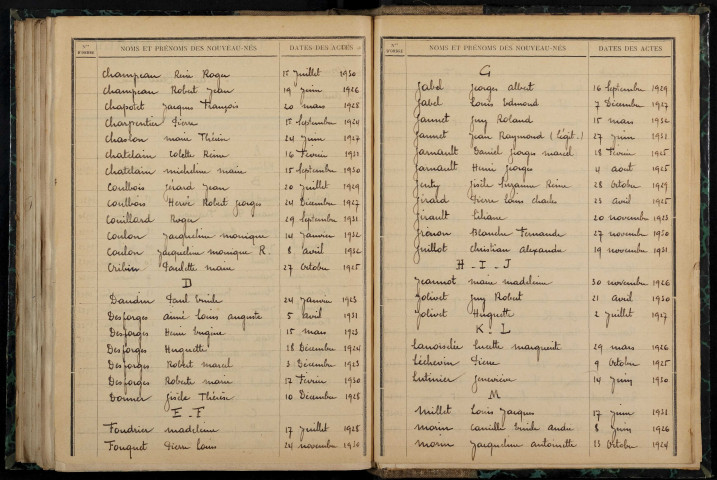 Nos D'ORDRE NOMS ET PRÉNOMS DES NOUVEAU-NÉS DATES DES ACTES
Champeau René Roger 15 Juillet 1930
Champeau Robert Jean 19 Juin 1926
Chapotet Jacques François 20 mars 1928
Charpentier Pierre 15 Septembre 1924
Chasson marie Thérèse 24 Juin 1927
Chatelain Colette Reine 16 Février 1931
Chatelain micheline marie 15 Septembre 1930
Coulbois Gérard Jean 20 Juillet 1929
Coulbois Hervé Robert Georges 24 Décembre 1927
Couillard Roger 29 Septembre 1931
Coulon Jacqueline monique 14 Janvier 1932
Coulon Jacqueline monique R. 8 avril 1932
Paulette marie 27 Octobre 1925
D
Daudin Paul Emile 24 Janvier 1923
Desforges aimé Louis auguste 5 avril 1931
Desforges Henri Eugène 15 mars 1923
Desforges Huguette 18 Décembre 1924
Desforges Robert marcel 3 Décembre 1923
Desforges Roberte marie 17 Février 1930
Gisèle Thérèse 10 Décembre 1928
E - F
Foudrier madeleine 17 Juillet 1928
Fouquet Pierre Louis 24 novembre 1930
Nos D'ORDRE NOMS ET PRÉNOMS DES NOUVEAU-NÉS DATES DES ACTES
G
Gabel Georges albert 16 Septembre 1929
Gabel Louis Edmond 7 Décembre 1927
Garmet Guy Roland 15 mars 1932
Garmet Jean Raymond (Légit.) 27 Juin 1931
Garnault Daniel Georges marcel 18 Février 1925
Garnault Henri Georges 4 aout 1925
Genty Gisèle Suzanne Reine 28 Octobre 1929
Girard Pierre Louis Charles 23 avril 1925
Girault Liliane 20 novembre 1923
Grénon Blanche Fernande 27 novembre 1930
Guillot Christian Alexandre 19 novembre 1931
H - I - J
Jeannot marie madeleine 30 novembre 1926
Jolivet Guy Robert 21 avril 1930
Jolivet Huguette 2 Juillet 1927
K L
Lanoiselée Lucette marguerite 29 mars 1926
Léchevin Pierre 9 Octobre 1925
Lutinier Geneviève 14 Juin 1930
M
Millet Louis Jacques 17 Juin 1931
morin Camille Emile André 8 Juin 1926
morin Jacqueline antoinette 23 Octobre 1924